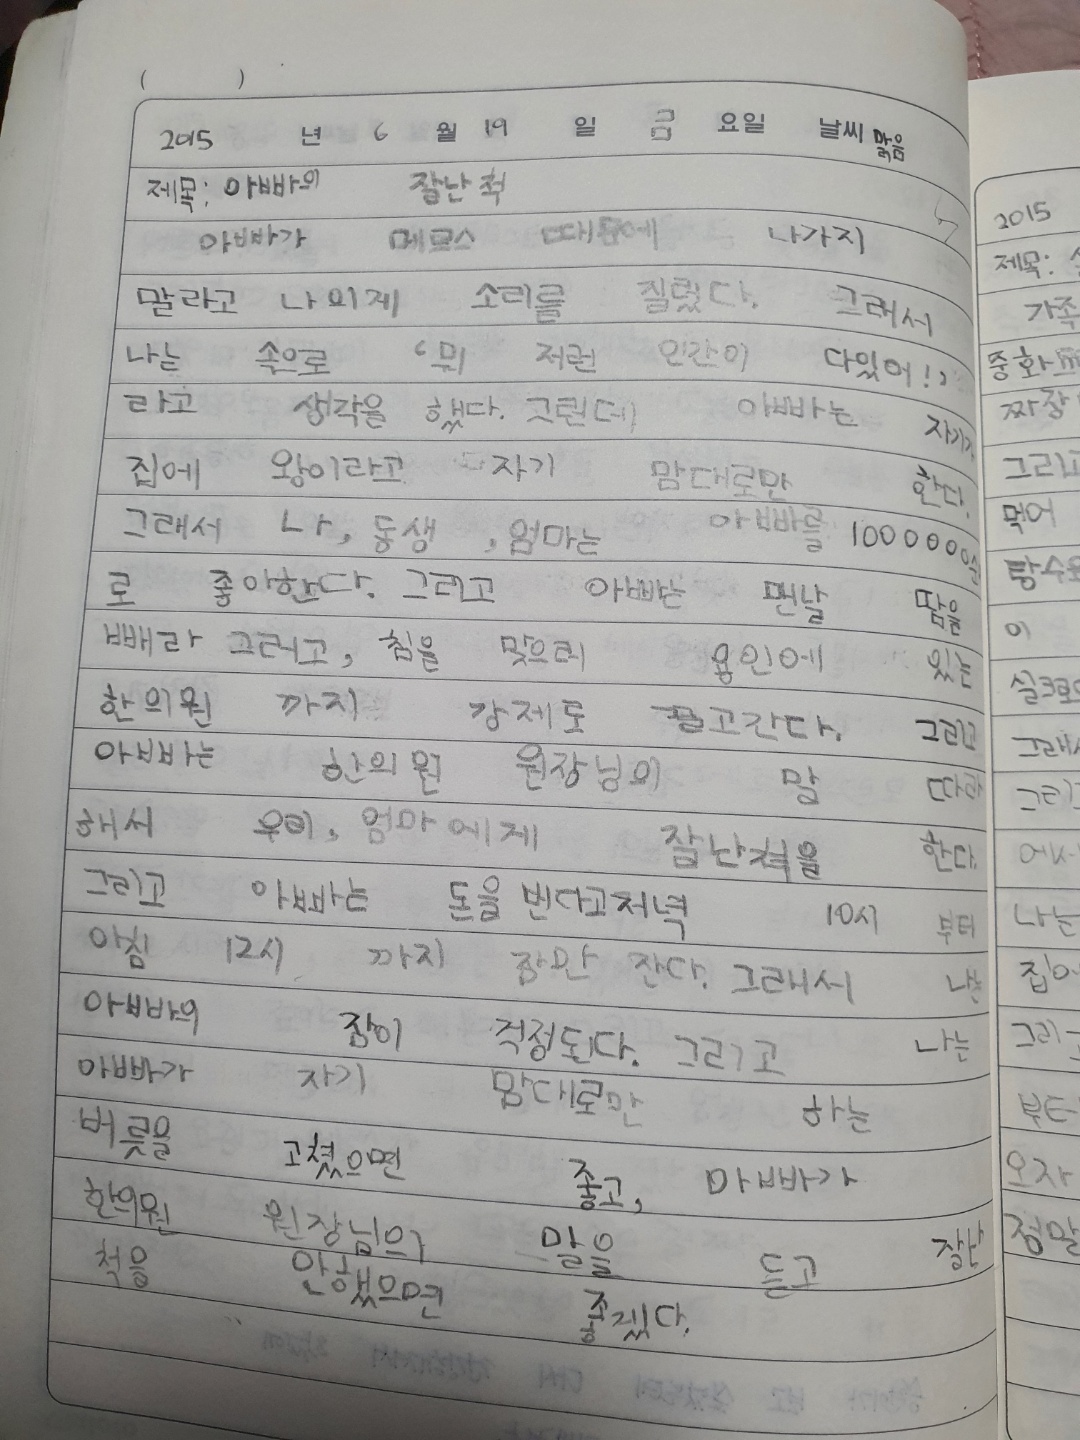 ( )
2015 년 6 월 19 일 금 요일 날씨 맑음
제목: 아빠의 잘난척
아빠가 메르스 때문에 나가지
말라고 나의게 소리를 질렀다. 그래서
나는 속으로 '뭐 저런 인간이 다있어!'
라고 생각을 했다. 그런데 아빠는 자기가
집에 왕이라고 자기 맘대로만 한다.
그래서 나, 동생, 엄마는 아빠를 1000000순위
로 좋아한다. 그리고 아빠는 맨날 땀을
빼라 그러고, 침을 맞으러 용인에 있는
한의원 까지 강제로 끌고간다. 그리고
아빠는 한의원 원장님의 말 따라
해서 우리, 엄마에게 잘난척을 한다.
그리고 아빠는 돈을 번다고 저녁 10시 부터
아침 12시 까지 잠만 잔다. 그래서 나는
아빠의 잠이 걱정된다. 그리고 나는
아빠가 자기 맘대로만 하는
버릇을 고쳤으면 좋고, 아빠가
한의원 원장님의 말을 듣고 잘난
척을 안했으면 좋겠다.
2015
제목:
가족
중화
짜장
그리고
먹어
탕수육
이
그래서
나는
집에
부터
오자
정말